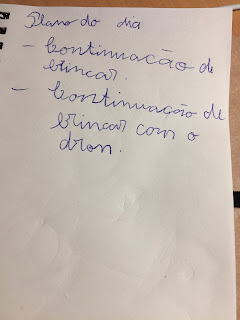 Plano do dia
- Continuação de
brincar.
- Continuação de
brincar com o
dron.